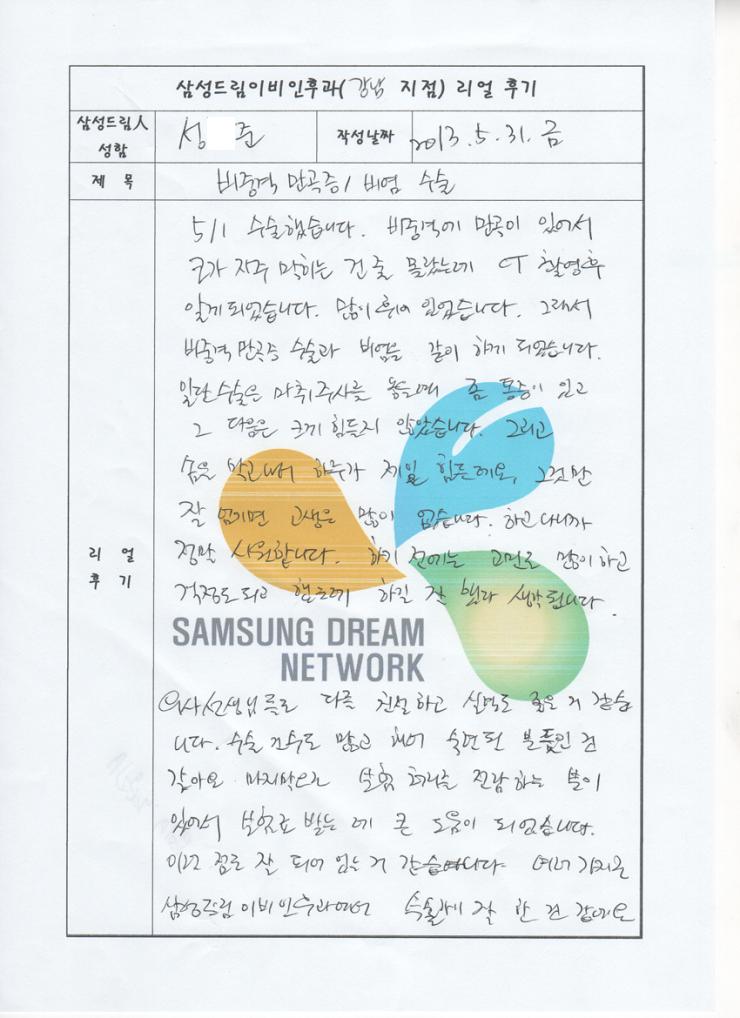 삼성드림이비인후과(강남 지점) 리얼 후기
삼성드림人 성함
성 준
작성날짜
2013. 5. 31. 금
제 목
비중격 만곡증/ 비염 수술
리 얼 후 기
5/1 수술했습니다. 비중격에 만곡이 있어서
코가 자주 막히는 건 줄 몰랐는데 CT 촬영후
알게되었습니다. 많이 휘어 있었습니다. 그래서
비중격 만곡증 수술과 비염을 같이 하게 되었습니다.
일단 수술은 마취주사를 놓으며 좀 통증이 있고
그 다음은 크게 힘들지 않았습니다. 그리고
솜을 막고나서 하루가 제일 힘든데요, 그것만
잘 넘기면 고생은 많이 없습니다. 하고나니까
정말 시원합니다. 하기 전에는 고민도 많이 하고
걱정도 되고 했는데 하길 잘 했다 생각됩니다.
SAMSUNG DREAM
NETWORK
의사선생님들도 다들 친절하고 실력도 좋은 거 같습
니다. 수술 건수도 많고 해서 숙련된 분들인 것
같아요 마지막으로 보험 처리를 전담하는 분이
있어서 보험료 받는 데 큰 도움이 되었습니다.
이런 점도 잘 되어 있는 거 같습니다 여러가지로
삼성드림이비인후과에서 수술받길 잘 한 것 같아요